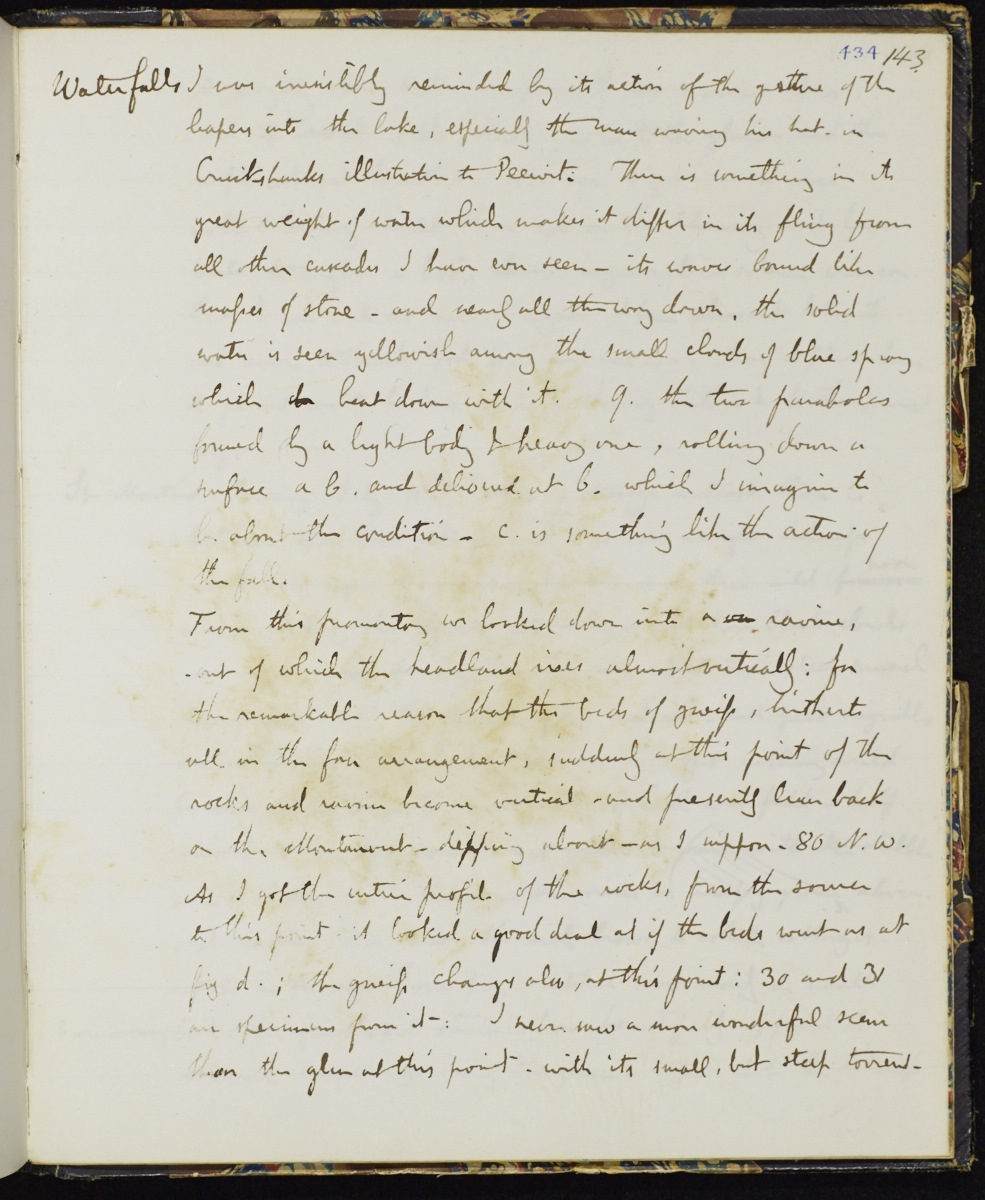 434 143.
Waterfalls I was irresistibly reminded by its action of the gesture of the
leapers into the lake, especially the man waving his hat. in
Cruickshanks illustration to Peewit. There is something in its
great weight of water which makes it differ in its fling from
all other cascades I have ever seen - its waves bound like
masses of stone - and nearly all the way down, the solid
water is seen yellowish among the small clouds of blue spray
which beat down with it. 9. the two parabolas
formed by a light body & heavy one, rolling down a
surface a b. and delivered at b. which I imagine to
be about the condition - c. is something like the action of
the fall.
From this promontory we looked down into a ravine,
out of which the headland rises almost vertically: for
the remarkable reason that the beds of gneiss, hitherto
all in the fan arrangement, suddenly at this point of the
rocks and ravine become vertical - and presently lean back
on the Montanvert - dipping about - as I suppose - 80 N.W.
As I got the entire profile of the rocks, from the source
to this point it looked a good deal as if the beds went as at
fig d. ; the gneiss changes also, at this point: 30 and 31
are specimens from it: I never saw a more wonderful scene
than the glen at this point - with its small, but steep torrent-